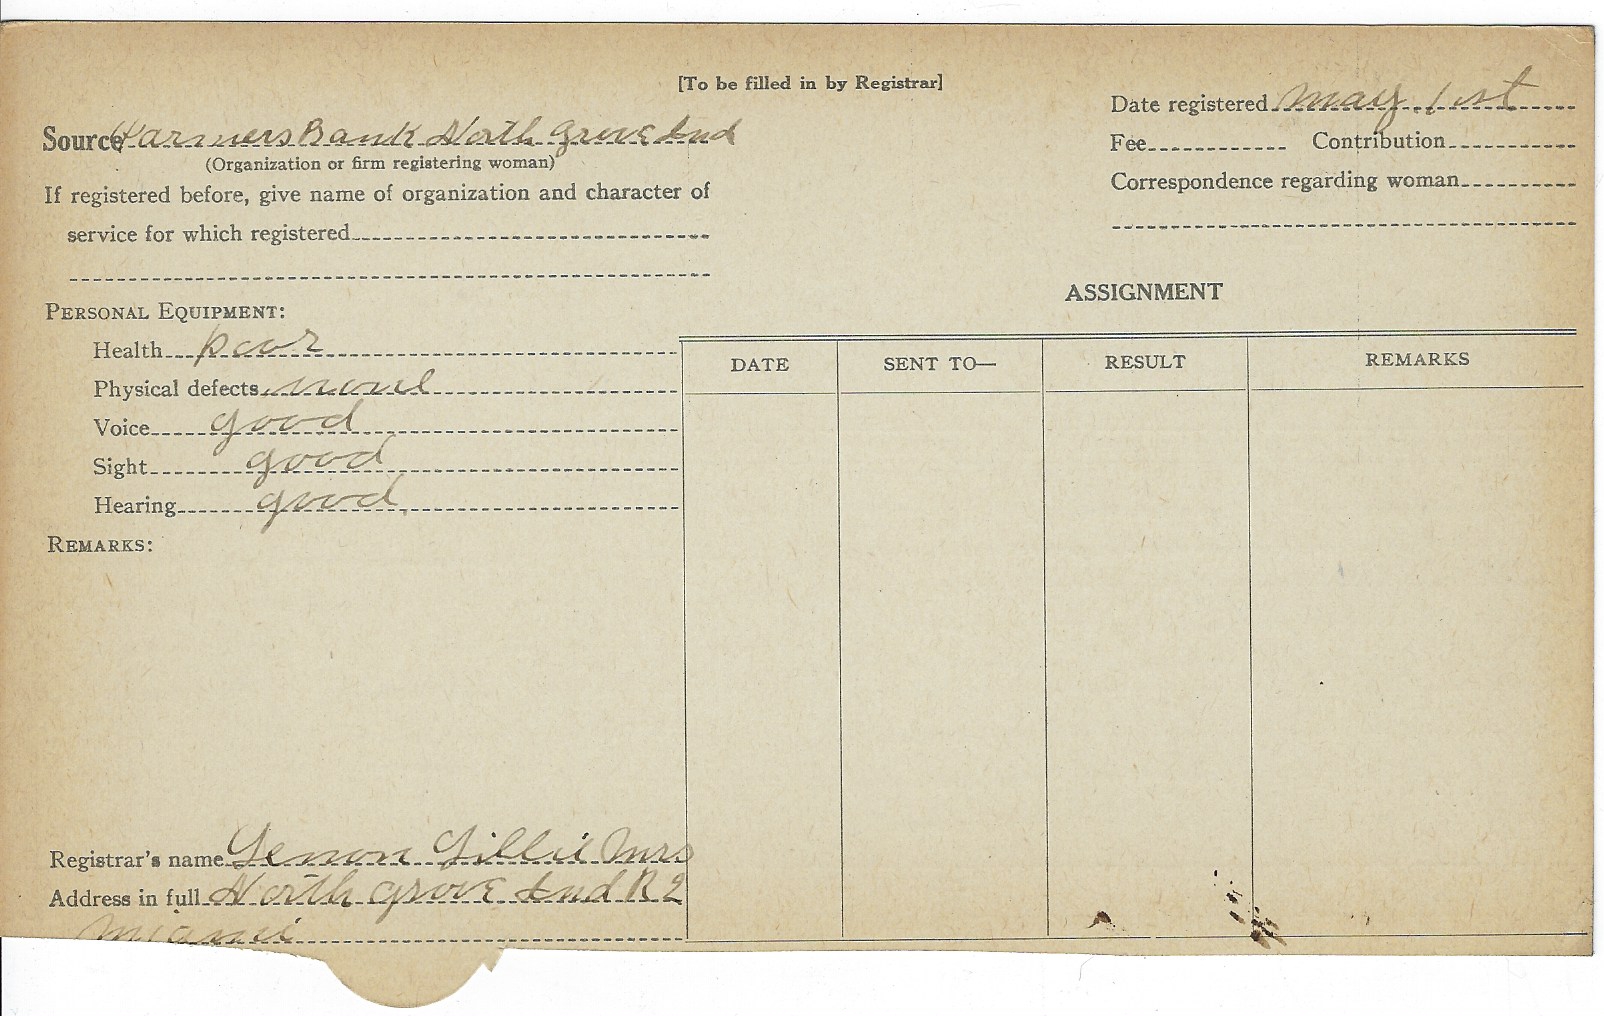 [To be filled in by Registrar]
Date registered May 1st
Source Farmers Bank North Grove Ind
(Organization or firm registering woman)
Fee Contribution
If registered before, give name of organization and character of
service for which registered
Correspondence regarding woman
PERSONAL EQUIPMENT:
Health poor
Physical defects none
Voice good
Sight good
Hearing good
REMARKS:
ASSIGNMENT
DATE SENT TO— RESULT REMARKS
Registrar's name Lenon Lillie Mrs
Address in full North Grove Ind R 2
Miami